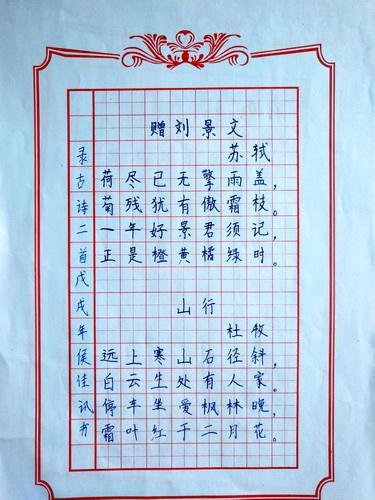 赠刘景文
苏轼
荷尽已无擎雨盖，
菊残犹有傲霜枝。
一年好景君须记，
正是橙黄橘绿时。
山行
杜牧
远上寒山石径斜，
白云生处有人家。
停车坐爱枫林晚，
霜叶红于二月花。
录古诗二首戊戌年侯佳讯书